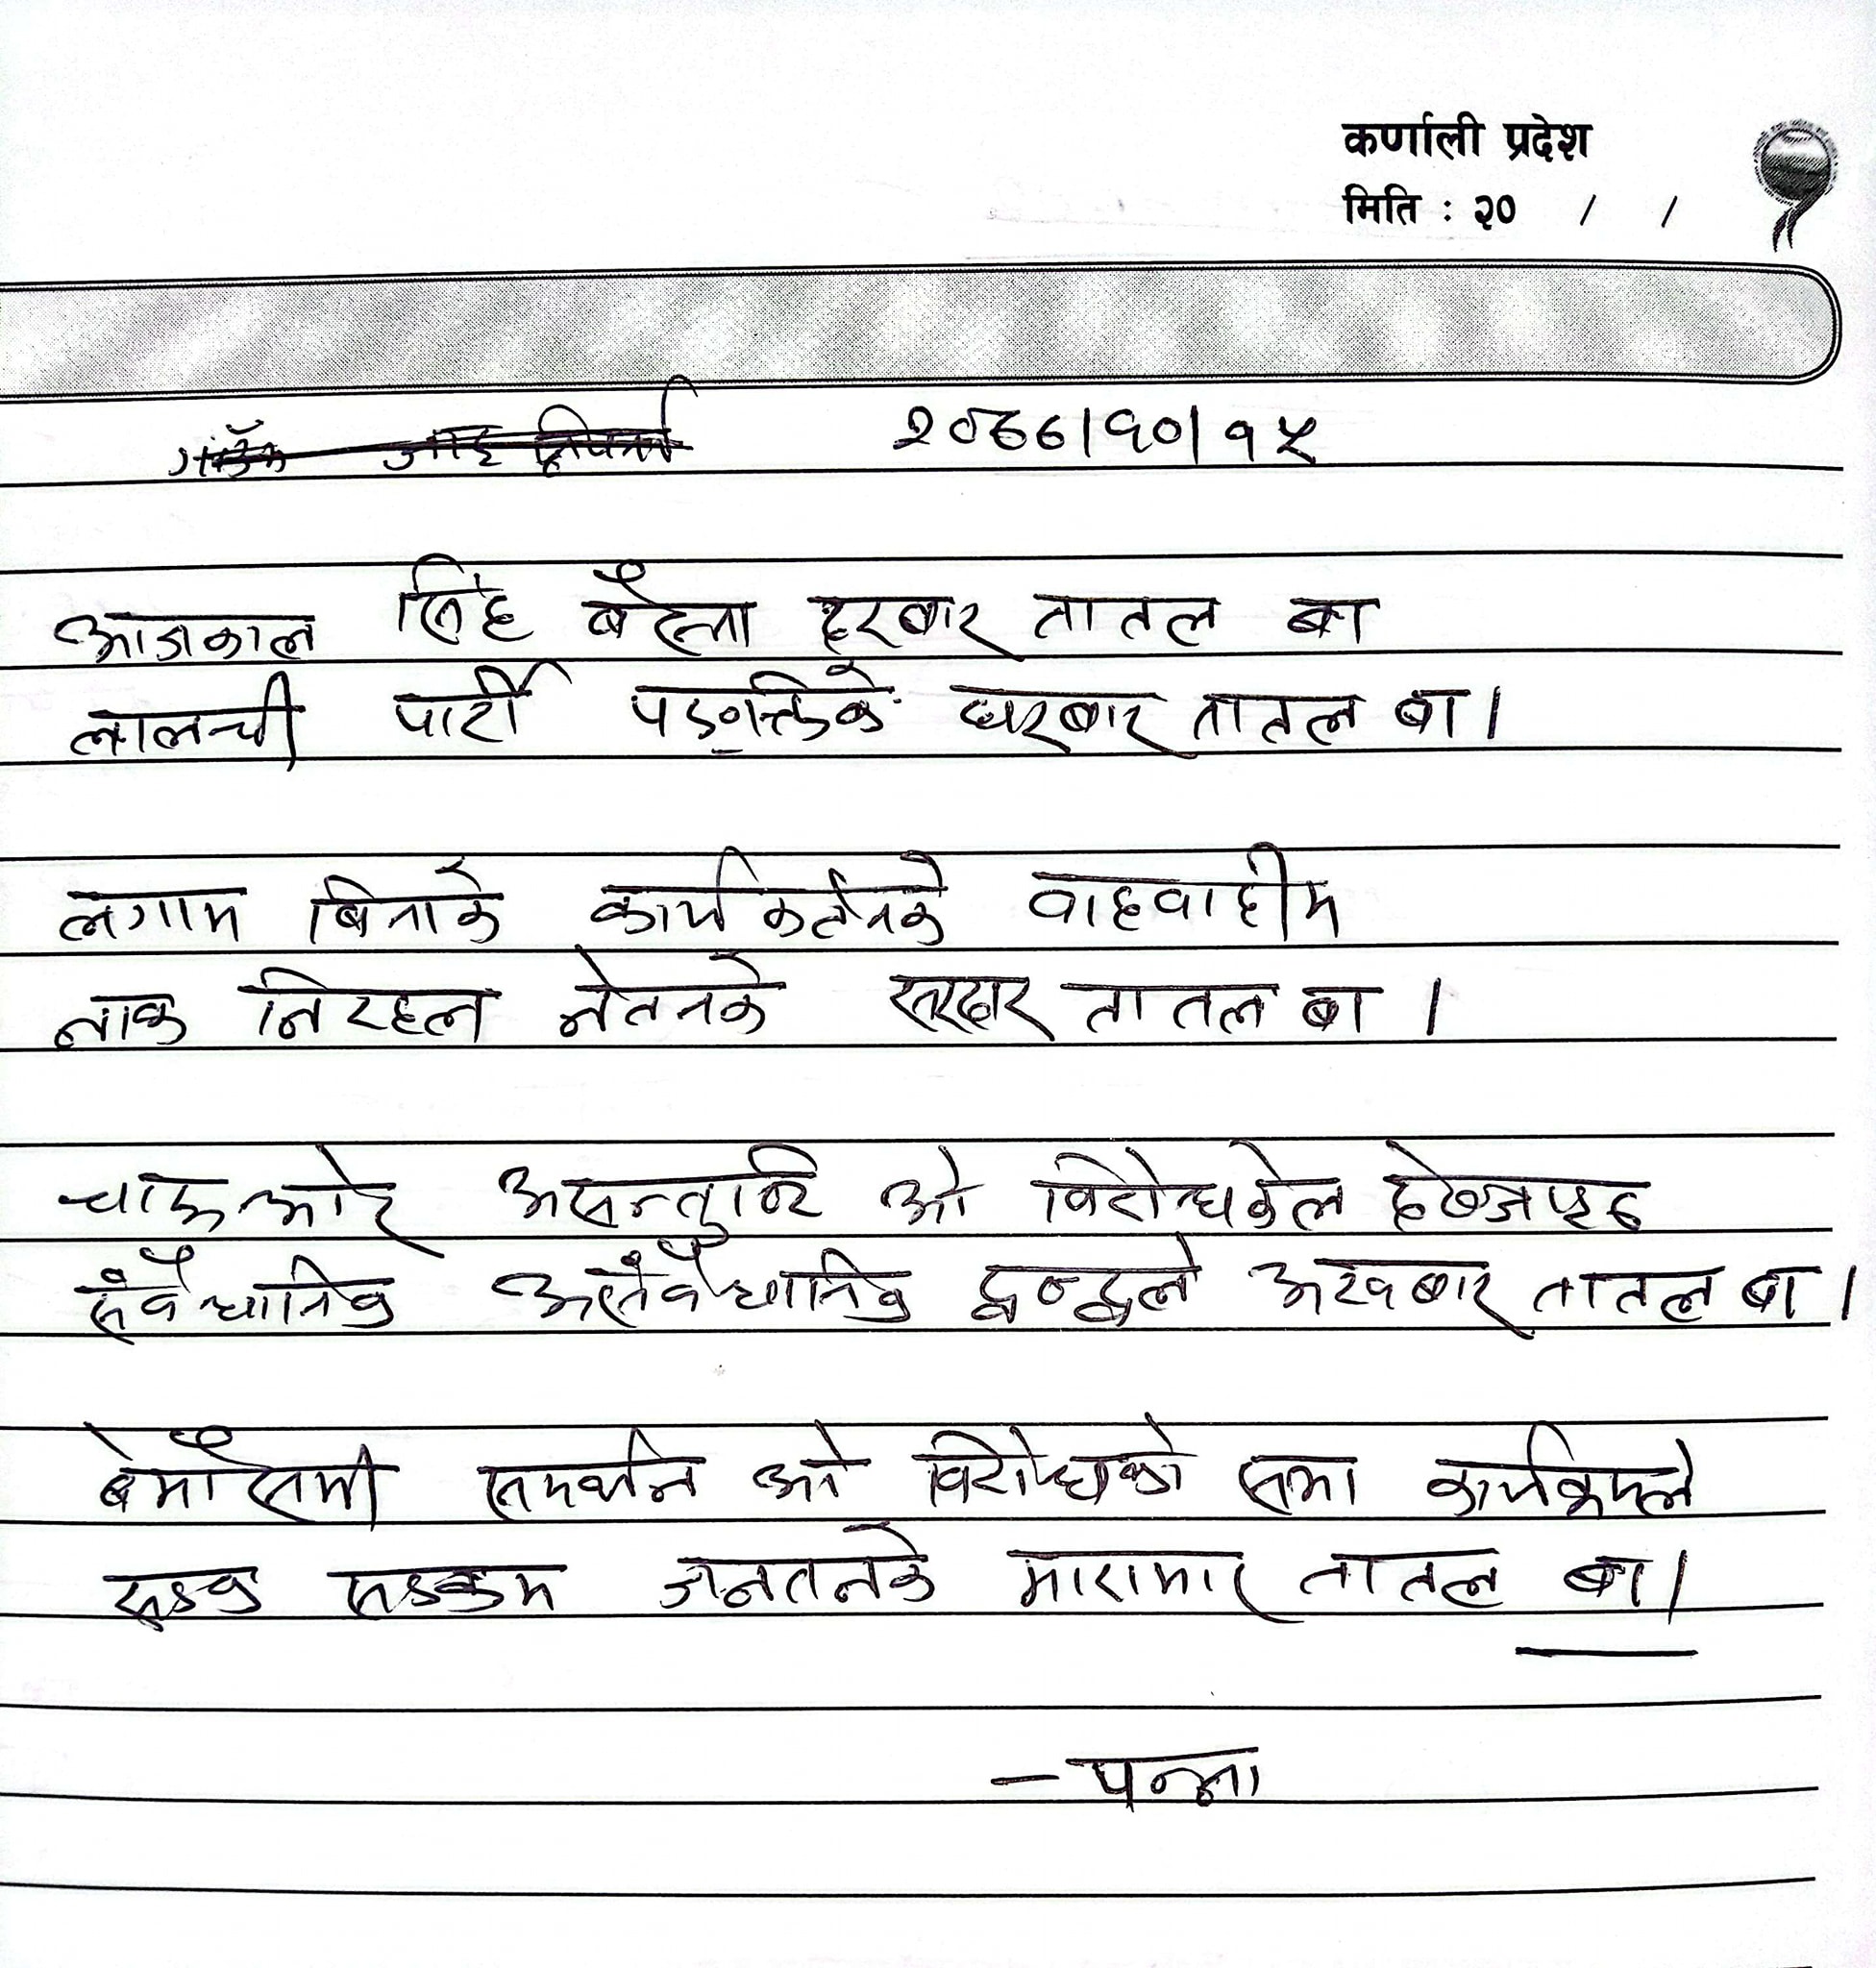 कर्णाली प्रदेश
मिति : २० / /
२०७७।१०।१५
आजकाल सिंह बैस्ना दरबार तातल बा
लालची पार्टी पङ्क्तिके घरबार तातल बा।
लगाम बिनाके कार्यकर्तनके वाहवाहीम
नाक निरहल नेतनके सरदार तातल बा ।
चारुओर असन्तुष्टि ओ विरोधकेल
संवैधानिक असंवैधानिक द्वन्द्वले अखबार तातल बा ।
बेमौसमी समर्थन ओ विरोधको सभा कार्यक्रमले
सडक सडकम जनतनके मारामार तातल बा।
– पन्ना